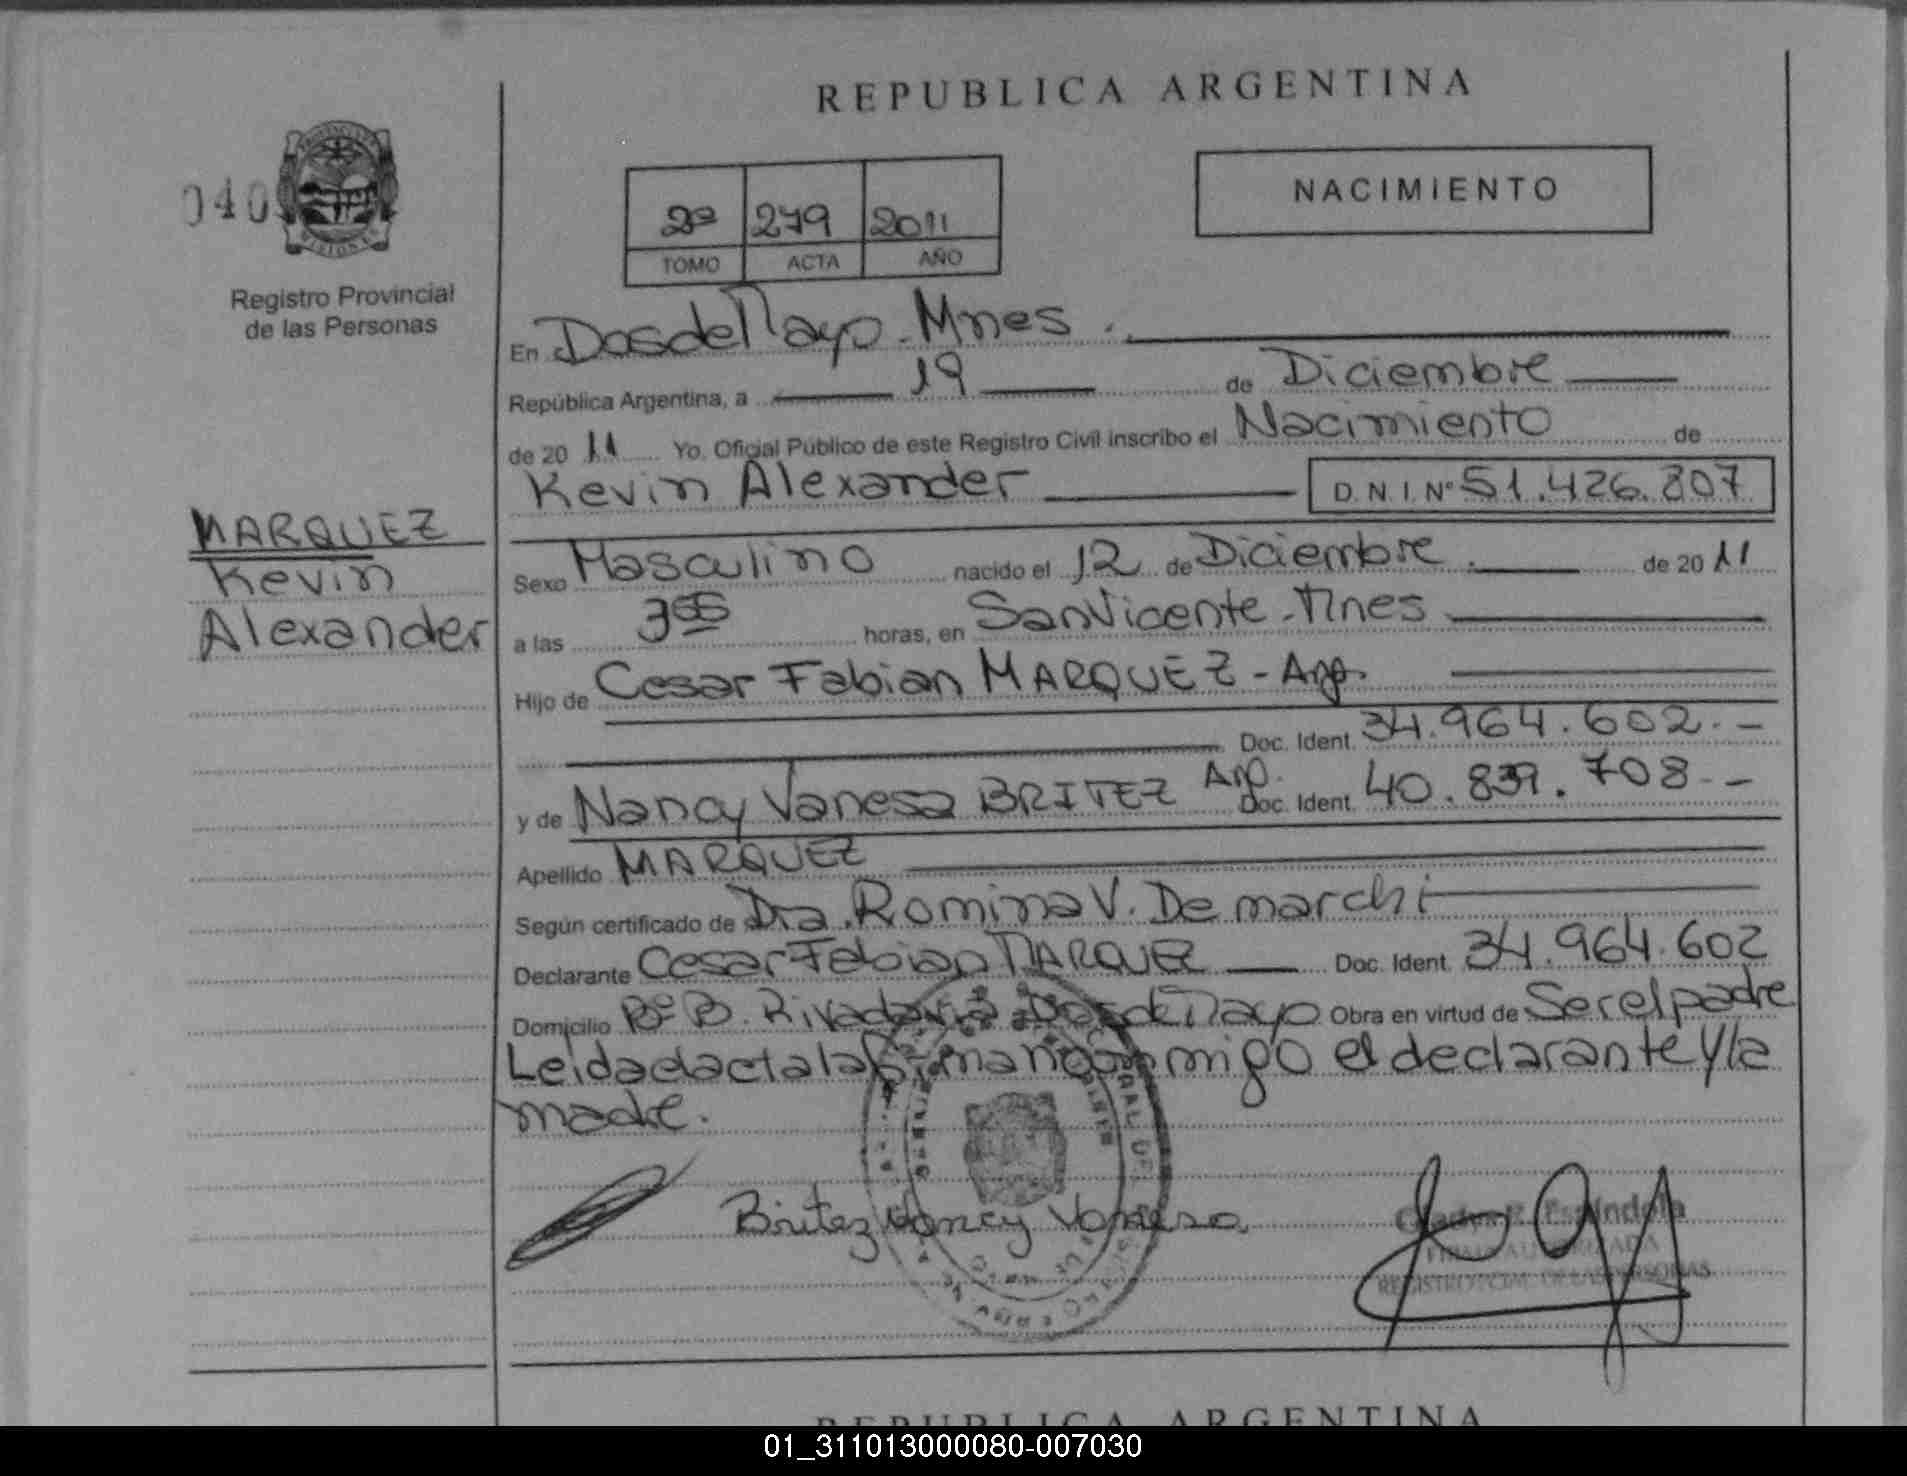 REPUBLICA ARGENTINA
040
NACIMIENTO
2º 279 2011
TOMO ACTA AÑO
Registro Provincial
de las Personas
En Dos de Mayo - Mnes.
República Argentina, a 19 de Diciembre
de 20 11 Yo. Oficial Público de este Registro Civil inscribo el Nacimiento de
Kevin Alexander D.N.I. Nº 51.426.807
MARQUEZ
Kevin
Alexander
Sexo Masculino nacido el 12 de Diciembre. de 20 11
a las horas, en San Vicente - Mnes
Hijo de Cesar Fabian MARQUEZ - Arg.
Doc. Ident. 34.964.602.-
y de Nancy Vanesa BRITEZ Arg. Doc. Ident. 40.839.708.-
Apellido MARQUEZ
Según certificado de Dra. Romina V. Demarchi
Declarante Cesar Fabian MARQUEZ Doc. Ident. 34.964.602
Domicilio Bº B. Rivadavia Dos de Mayo Obra en virtud de Ser el padre
Leida el acta la firman conmigo el declarante y la
madre.
Britez Nancy Vanesa
Espindola
FIRMA AUTORIZADA
REGISTRO PCIAL. DE LAS PERSONAS
REPUBLICA ARGENTINA
01_311013000080-007030